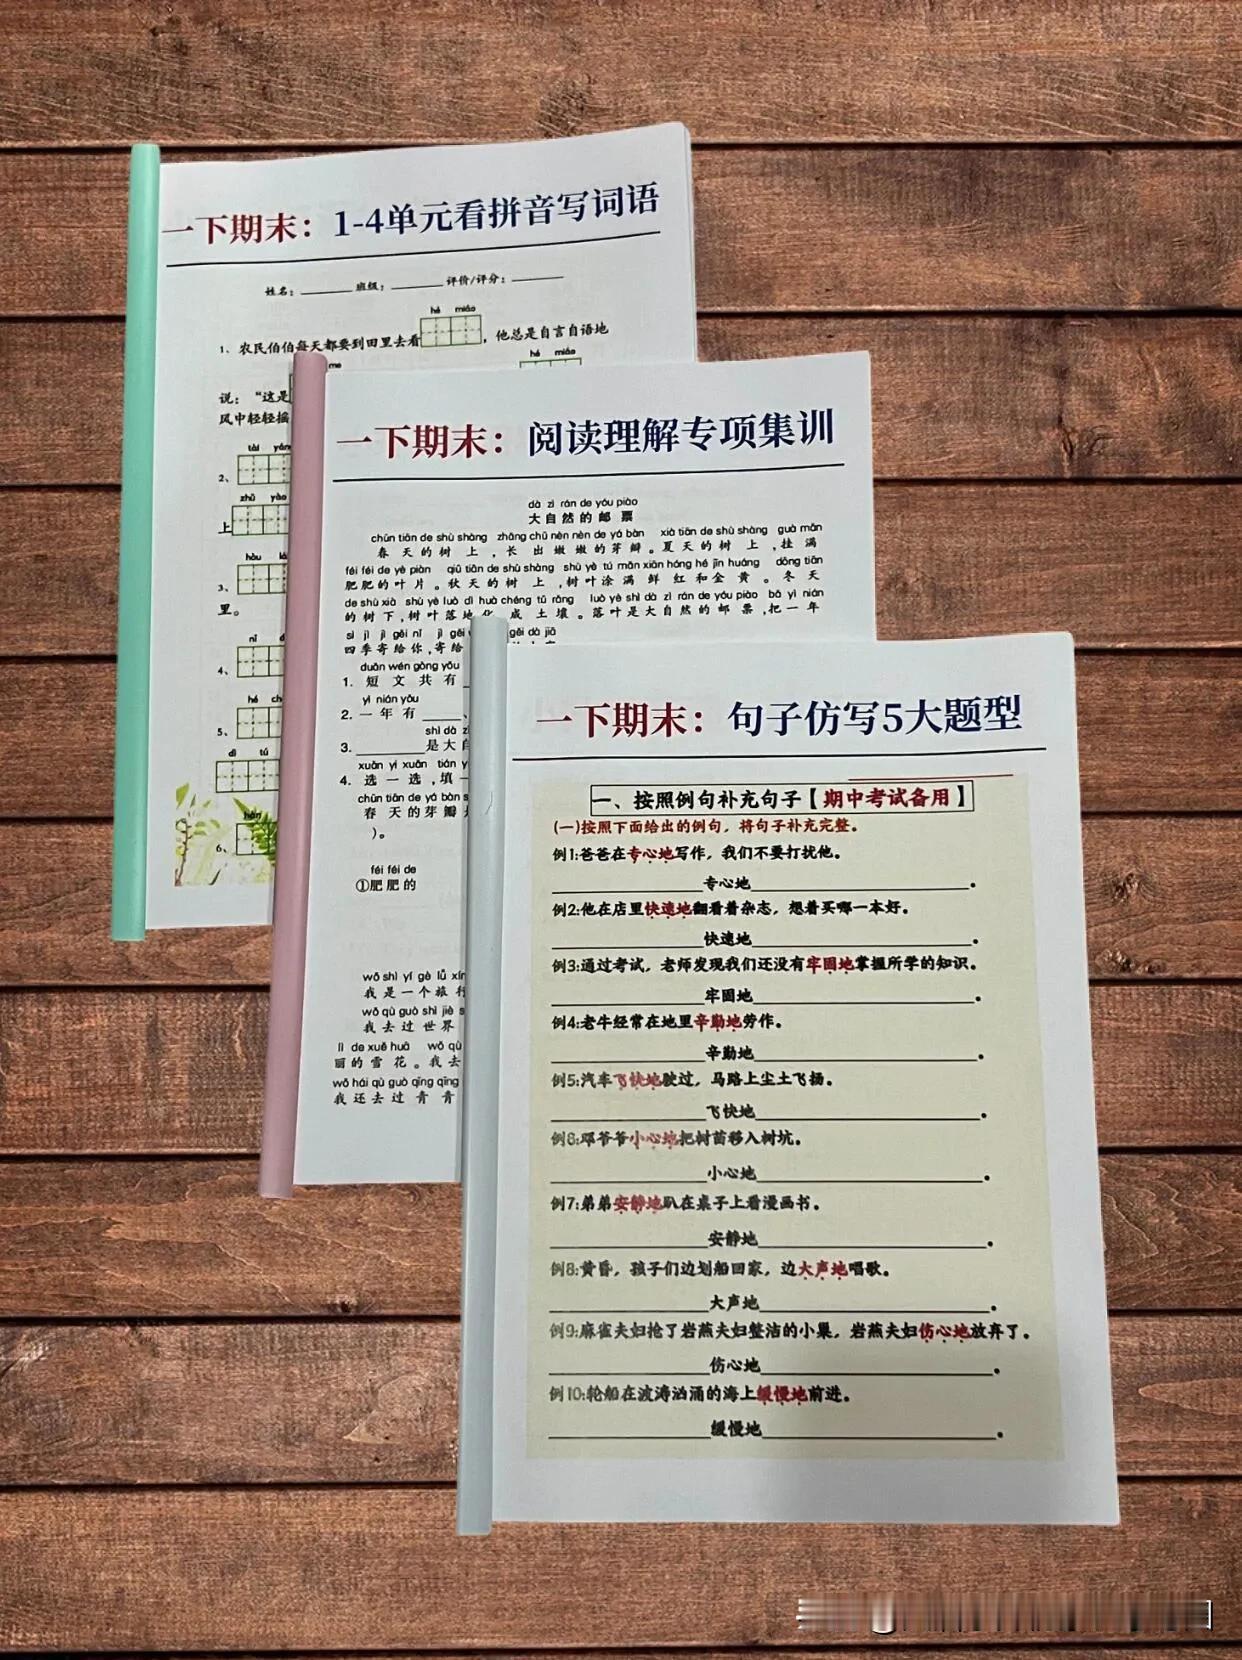 一下期末：1-4单元看拼音写词语
姓名：________ 班级：________ 评价/评分：________
hé miáo
1、农民伯伯每天都要到田里去看，他总是自言自语地
me hé miáo
说：“这是
风中轻轻摇
tài yán
2、
zhǔ yào
上
hòu
3、
里。
nǐ
4、
hé
5、
dì tú
6、
一下期末：阅读理解专项集训
dà zì rán de yóu piào
大自然的邮票
chūn tiān de shù shàng zhǎng chū nèn nèn de yá bàn xià tiān de shù shàng guà mǎn
春天的树上,长出嫩嫩的芽瓣。夏天的树上,挂满
féi féi de yè piàn qiū tiān de shù shàng shù yè tú mǎn xiān hóng hé jīn huáng dōng tiān
肥肥的叶片。秋天的树上,树叶涂满鲜红和金黄。冬天
de shù xià shù yè luò dì huà chéng tǔ rǎng luò yè shì dà zì rán de yóu piào bǎ yì nián
的树下,树叶落地化成土壤。落叶是大自然的邮票,把一年
sì jì jì gěi nǐ jì gěi gěi dà jiā
四季寄给你,寄给
duǎn wén gòng yǒu
1. 短文共有
yì nián yǒu
2. 一年有____、
shì dà
3. ________是大自
xuǎn yi xuǎn tián
4. 选一选,填一
chūn tiān de yá bàn
春天的芽瓣
)。
féi féi de
①肥肥的
wǒ shì yí gè lǚ
我是一个旅行
wǒ qù guò shì jiè
我去过世界
lì de xuě huā wǒ qù
丽的雪花。我去
wǒ hái qù guò qīng qīng
我还去过青青
一下期末：句子仿写5大题型
一、按照例句补充句子【期中考试备用】
(一)按照下面给出的例句，将句子补充完整。
例1:爸爸在专心地写作，我们不要打扰他。
________专心地________。
例2:他在店里快速地翻看着杂志，想着买哪一本好。
________快速地________。
例3:通过考试，老师发现我们还没有牢固地掌握所学的知识。
________牢固地________。
例4:老牛经常在地里辛勤地劳作。
________辛勤地________。
例5:汽车飞快地驶过，马路上尘土飞扬。
________飞快地________。
例6:邓爷爷小心地把树苗移入树坑。
________小心地________。
例7:弟弟安静地趴在桌子上看漫画书。
________安静地________。
例8:黄昏，孩子们边划船回家，边大声地唱歌。
________大声地________。
例9:麻雀夫妇抢了岩燕夫妇整洁的小巢，岩燕夫妇伤心地放弃了。
________伤心地________。
例10:轮船在波涛汹涌的海上缓慢地前进。
________缓慢地________。